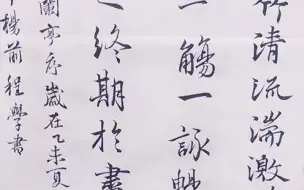 竹清流湍激
一觴一詠
終期於盡
蘭亭序歲在乙未夏
楊前程學書